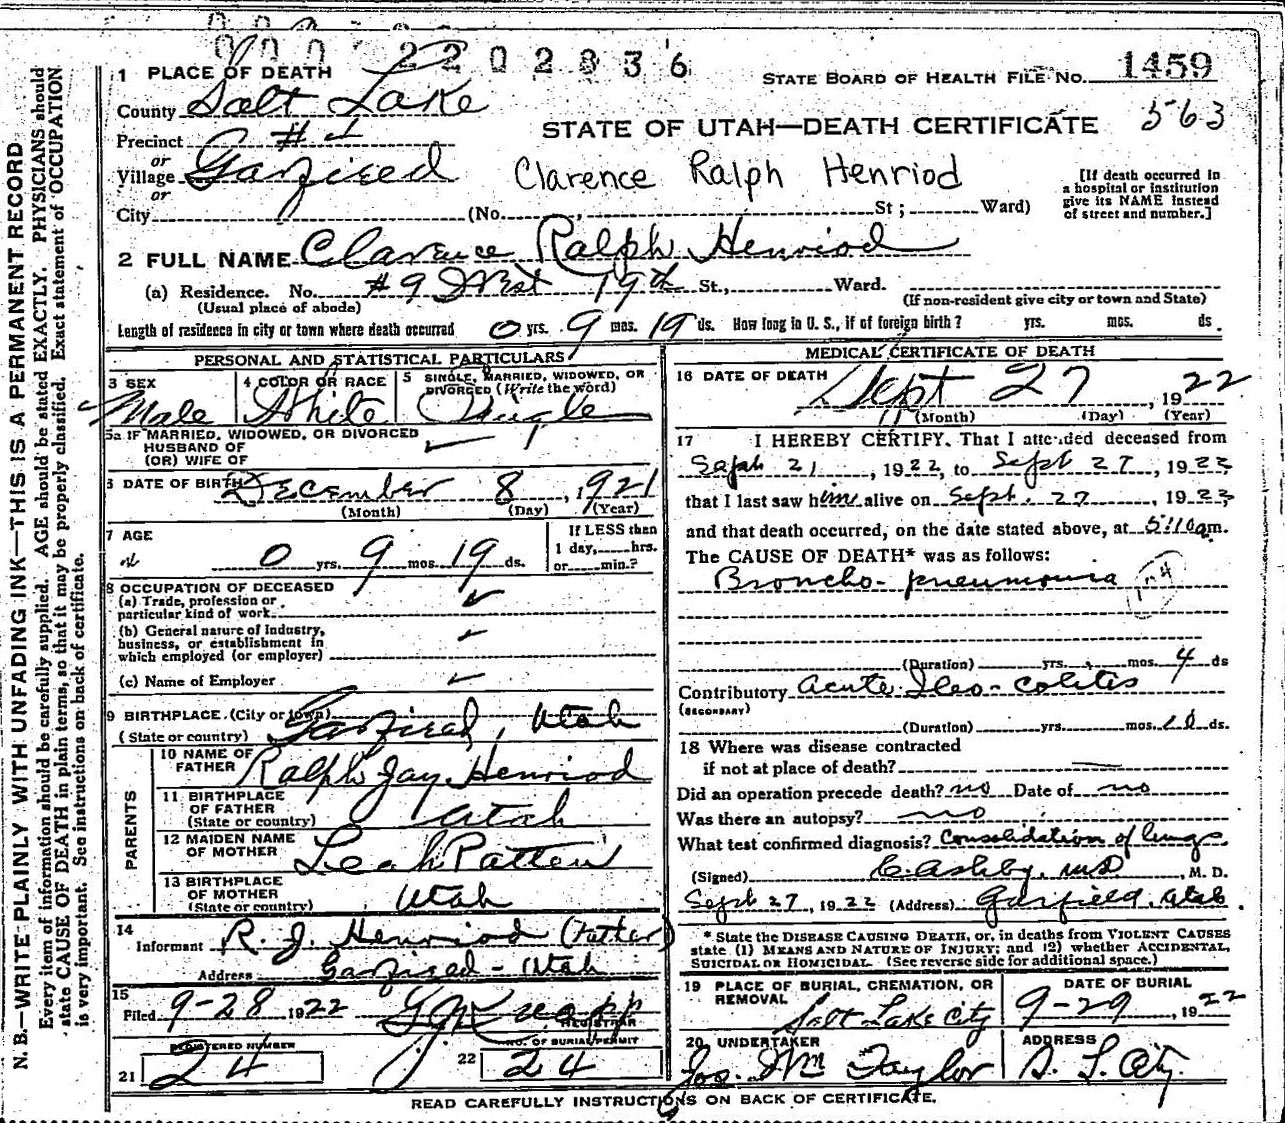 0 0 0 2 2 0 2 3 3 6
STATE BOARD OF HEALTH FILE NO. 1459
563
STATE OF UTAH—DEATH CERTIFICATE
1 PLACE OF DEATH
County Salt Lake
Precinct #1
or
Village Garfield
or
City (No. , St ; Ward)
Clarence Ralph Henriod
[If death occurred in
a hospital or institution
give its NAME instead
of street and number.]
2 FULL NAME Clarence Ralph Henriod
(a) Residence. No. #9 West 19th St., Ward.
(Usual place of abode)
(If non-resident give city or town and State)
Length of residence in city or town where death occurred 0 yrs. 9 mos. 19 ds. How long in U. S., if of foreign birth? yrs. mos. ds.
PERSONAL AND STATISTICAL PARTICULARS
3 SEX
Male
4 COLOR OR RACE
White
5 SINGLE, MARRIED, WIDOWED, OR
DIVORCED (Write the word)
Single
5a IF MARRIED, WIDOWED, OR DIVORCED
HUSBAND OF
(OR) WIFE OF
6 DATE OF BIRTH December 8, 1921
(Month) (Day) (Year)
7 AGE
0 yrs. 9 mos. 19 ds.
If LESS than
1 day, hrs.
or min.?
8 OCCUPATION OF DECEASED
(a) Trade, profession or
particular kind of work
(b) General nature of Industry,
business, or establishment in
which employed (or employer)
(c) Name of Employer
9 BIRTHPLACE (City or town)
(State or country) Garfield, Utah
PARENTS
10 NAME OF
FATHER Ralph Jay Henriod
11 BIRTHPLACE
OF FATHER
(State or country) Utah
12 MAIDEN NAME
OF MOTHER Leah Patten
13 BIRTHPLACE
OF MOTHER
(State or country) Utah
14
Informant R. J. Henriod (Father)
Address Garfield - Utah
15
Filed 9-28, 1922
REGISTRAR
REGISTERED NUMBER
21 24
NO. OF BURIAL PERMIT
22 24
MEDICAL CERTIFICATE OF DEATH
16 DATE OF DEATH
Sept 27, 1922
(Month) (Day) (Year)
17 I HEREBY CERTIFY, That I attended deceased from
Sept 21, 1922, to Sept 27, 1922
that I last saw him alive on Sept. 27, 1922
and that death occurred, on the date stated above, at 5:10 a m.
The CAUSE OF DEATH* was as follows:
Broncho-pneumonia
(Duration) yrs. mos. 4 ds
Contributory Acute Ileo-colitis
(SECONDARY)
(Duration) yrs. mos. 10 ds.
18 Where was disease contracted
if not at place of death?
Did an operation precede death? no Date of no
Was there an autopsy? no
What test confirmed diagnosis? Consolidation of lungs
(Signed) C. Ashby, MD, M. D.
Sept 27, 1922 (Address) Garfield, Utah.
* State the DISEASE CAUSING DEATH, or, in deaths from VIOLENT CAUSES
state (1) MEANS AND NATURE OF INJURY; and (2) whether ACCIDENTAL,
SUICIDAL OR HOMICIDAL. (See reverse side for additional space.)
19 PLACE OF BURIAL, CREMATION, OR
REMOVAL
Salt Lake City
DATE OF BURIAL
9-29, 1922
20 UNDERTAKER
Jos. Wm Taylor
ADDRESS
S. L. City.
READ CAREFULLY INSTRUCTIONS ON BACK OF CERTIFICATE.
N. B.—WRITE PLAINLY WITH UNFADING INK—THIS IS A PERMANENT RECORD
Every item of information should be carefully supplied. AGE should be stated EXACTLY. PHYSICIANS should
state CAUSE OF DEATH in plain terms, so that it may be properly classified. Exact statement of OCCUPATION
is very important. See instructions on back of certificate.